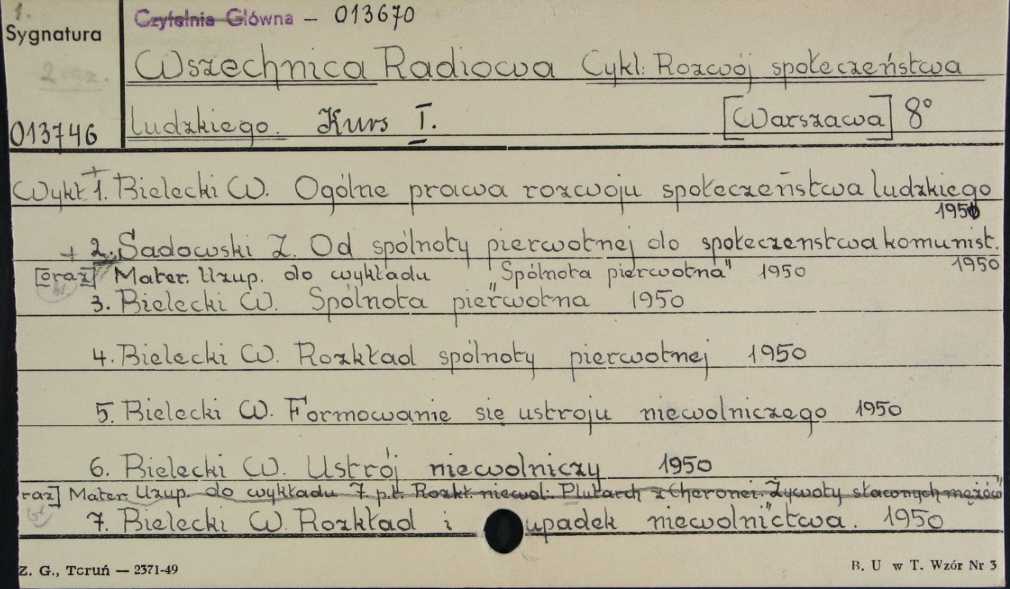 1.
Czytelnia Główna – 013670
Sygnatura
2 raz.
Wszechnica Radiowa Cykl: Rozwój społeczeństwa
013746
ludzkiego. Kurs I. [Warszawa] 8°
Wykł. 1. Bielecki W. Ogólne prawa rozwoju społeczeństwa ludzkiego
1950
+ 2. Sadowski Z. Od spólnoty pierwotnej do społeczenstwa komunist.
1950
[oraz] Mater. Uzup. do wykładu "Spólnota pierwotna" 1950
3. Bielecki W. Spólnota pierwotna 1950
4. Bielecki W. Rozkład spólnoty pierwotnej 1950
5. Bielecki W. Formowanie się ustroju niewolniczego 1950
6. Bielecki W. Ustrój niewolniczy 1950
raz] Mater. Uzup. do wykładu 7 p.t. Rozkł. niewol. Plutarch z Cheronei. Żywoty sławnych mężów"
7. Bielecki W. Rozkład i upadek niewolnictwa. 1950
Z. G., Toruń — 2371-49
B. U w T. Wzór Nr 3